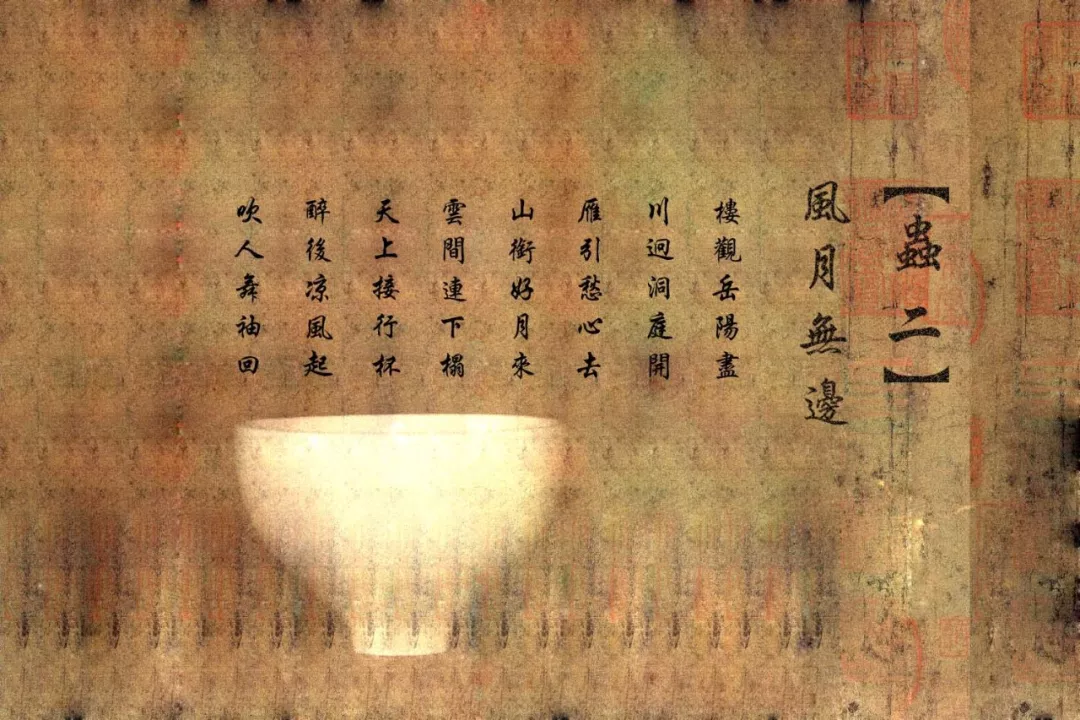 【蟲二】
風月無邊
樓觀岳陽盡
川迥洞庭開
雁引愁心去
山銜好月來
雲間連下榻
天上接行杯
醉後凉風起
吹人舞袖回